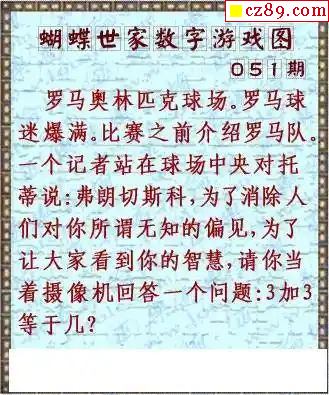 cz89.com
蝴蝶世家数字游戏图
051期
罗马奥林匹克球场。罗马球
迷爆满。比赛之前介绍罗马队。
一个记者站在球场中央对托
蒂说:弗朗切斯科,为了消除人
们对你所谓无知的偏见,为了
让大家看到你的智慧,请你当
着摄像机回答一个问题:3加3
等于几?